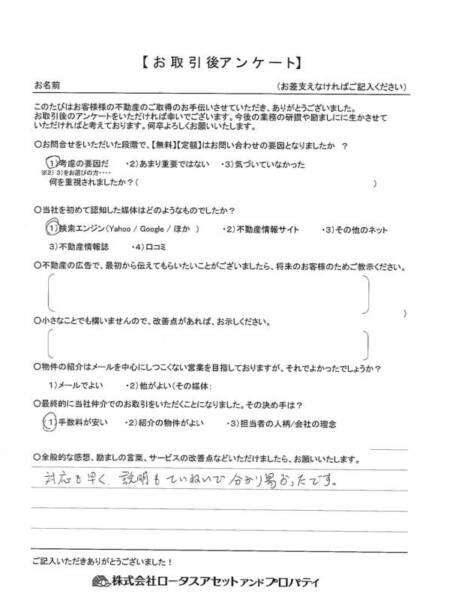 【お取引後アンケート】
お名前 (お差支えなければご記入ください)
このたびはお客様様の不動産のご取得のお手伝いさせていただき、ありがとうございました。
お取引後のアンケートをいただければ幸いでございます。今後の業務の研鑽や励ましにに生かさせて
いただければと考えております。何卒よろしくお願いいたします。
○お問合せをいただいた段階で、【無料】【定額】はお問い合わせの要因となりましたか ?
1)考慮の要因だ ・2)あまり重要ではない ・3)気づいていなかった
※2) 3)をお選びの方・・・・
何を重視されましたか?( )
○当社を初めて認知した媒体はどのようなものでしたか?
1)検索エンジン(Yahoo / Google / ほか ) ・2)不動産情報サイト ・3)その他のネット
3)不動産情報誌 ・4)口コミ
○不動産の広告で、最初から伝えてもらいたいことがございましたら、将来のお客様のためご教示ください。
)
○小さなことでも構いませんので、改善点があれば、お示しください。
○物件の紹介はメールを中心にしつこくない営業を目指しておりますが、それでよかったでしょうか?
1)メールでよい ・2)他がよい(その媒体:
○最終的に当社仲介でのお取引をいただくことになりました。その決め手は?
1)手数料が安い ・2)紹介の物件がよい ・3)担当者の人柄/会社の理念
○全般的な感想、励ましの言葉、サービスの改善点などいただけましたら、お願いいたします。
対応も早く、説明もていねいで分かり易かったです。
ご記入いただきありがとうございました!
株式会社ロータスアセットアンドプロパティ